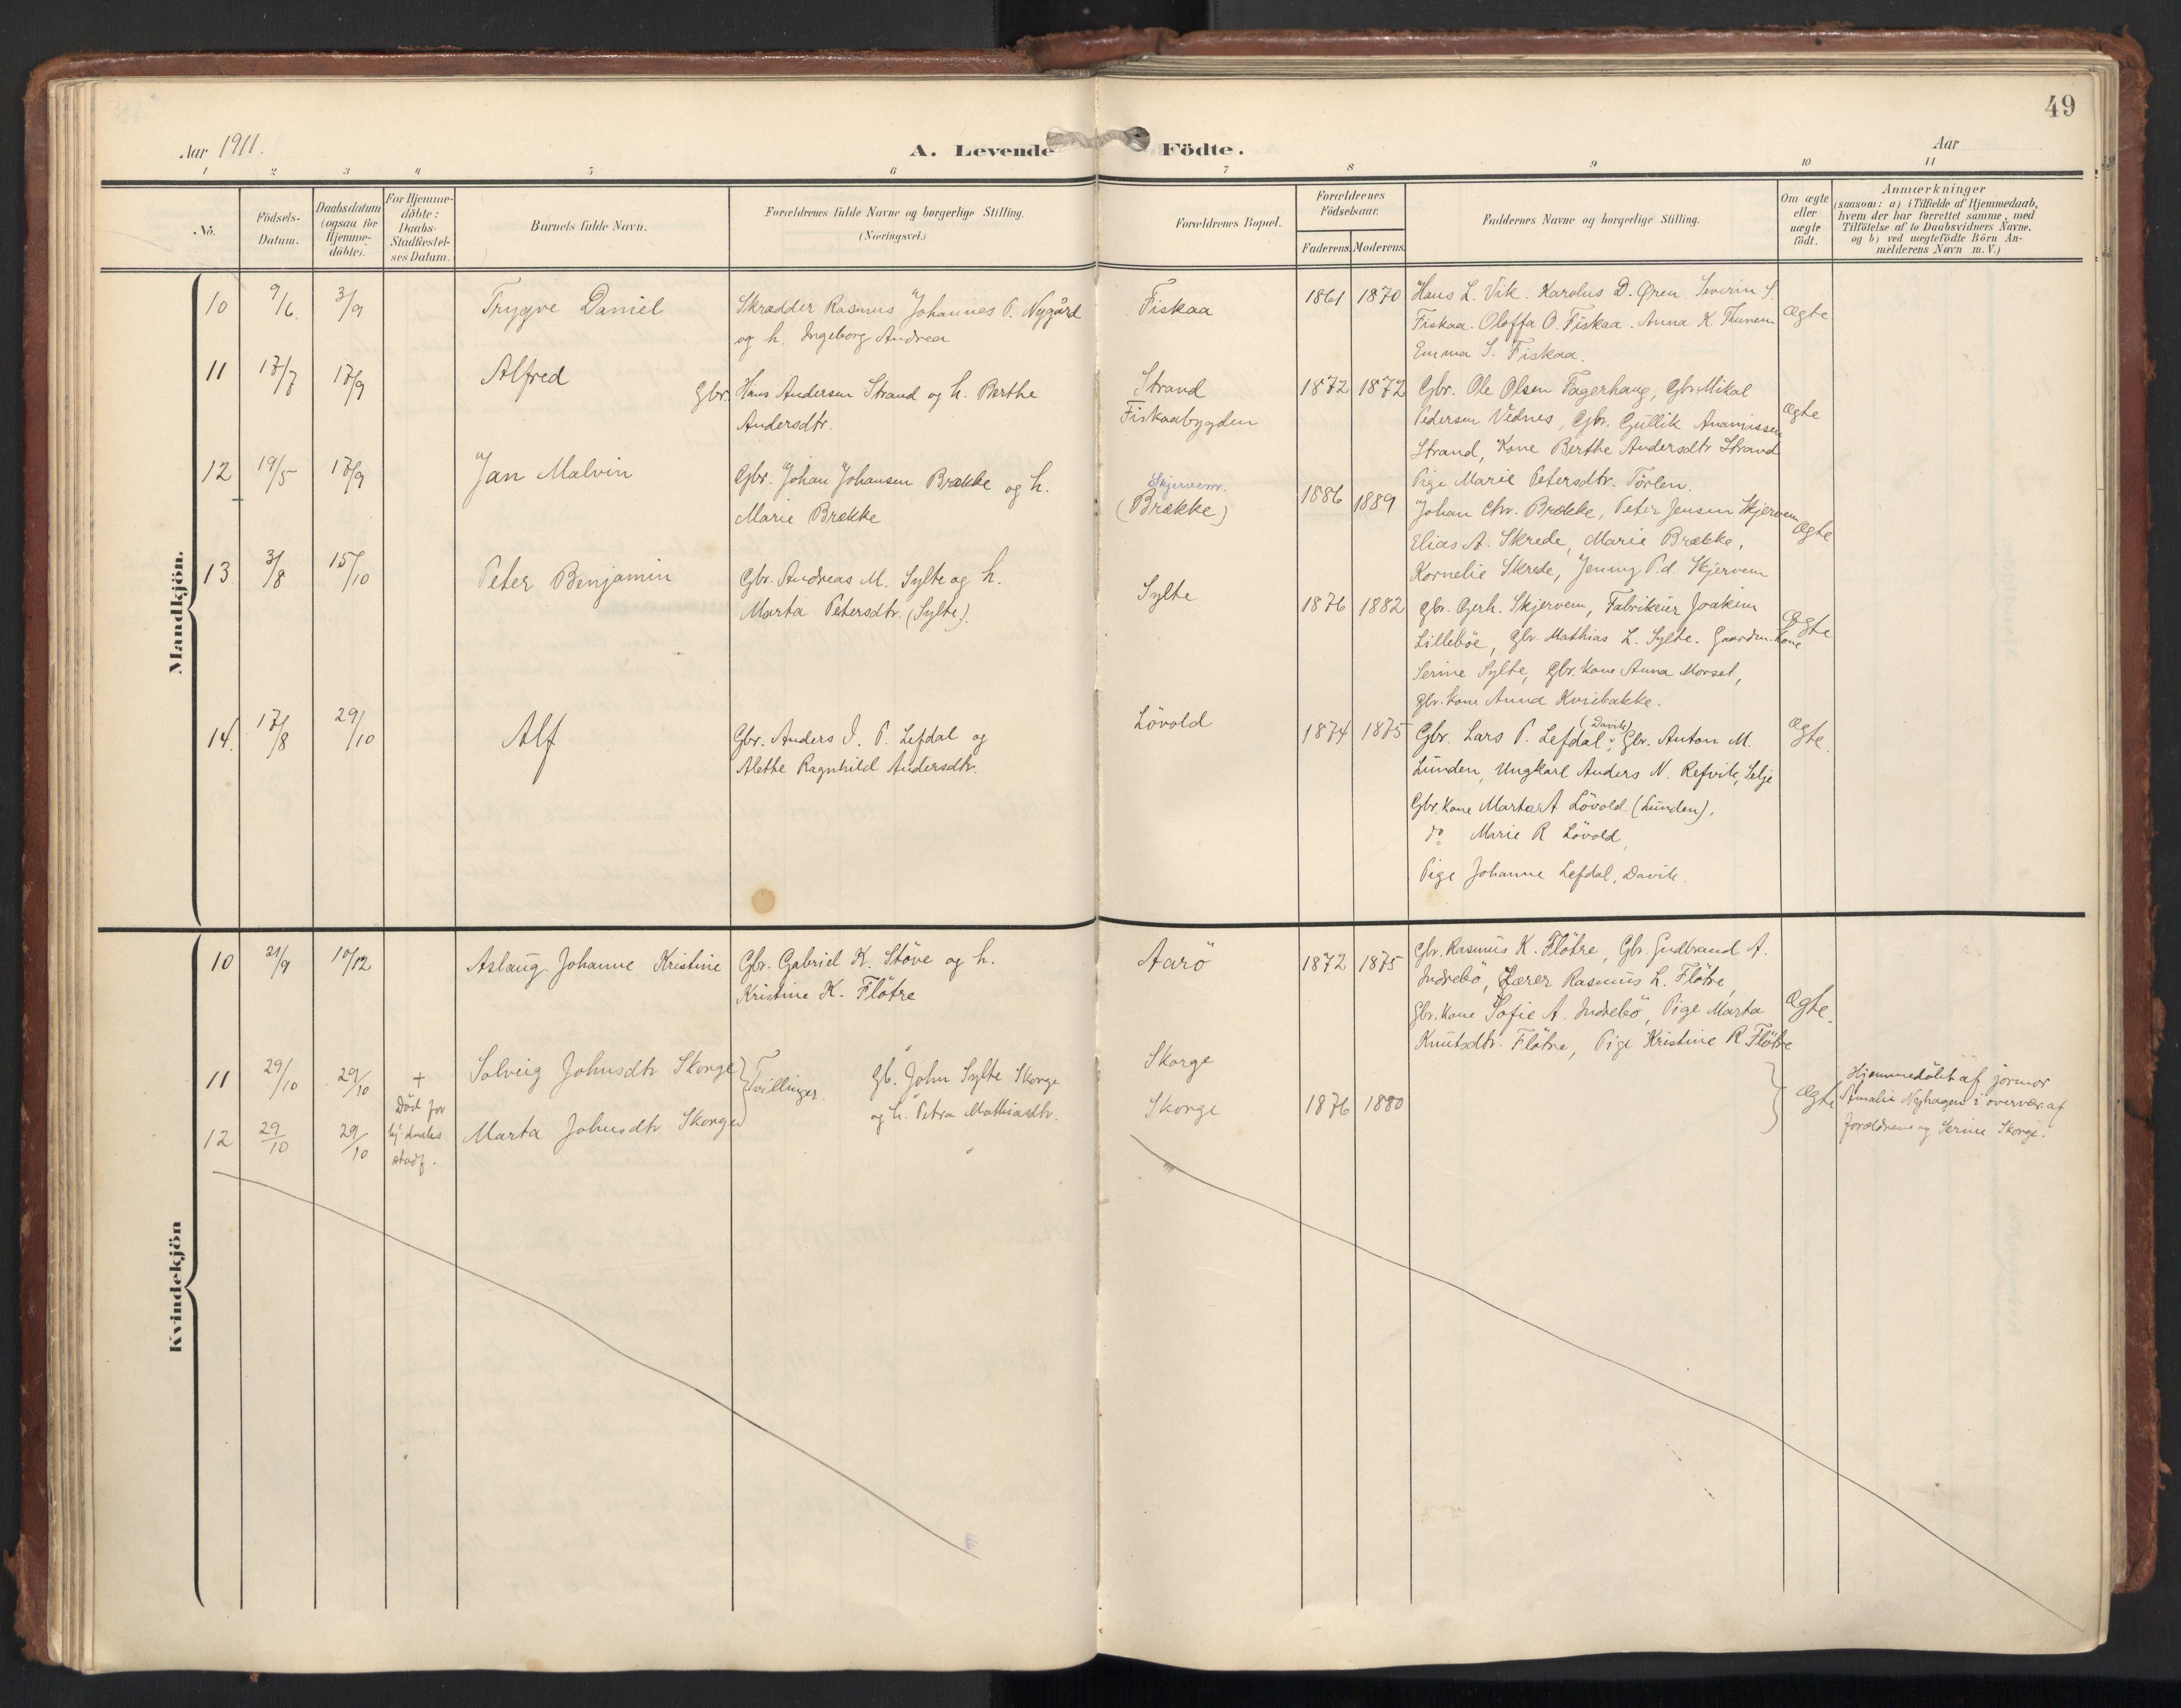 49
Aar 1911.
A. Levende Födte.
Aar
1 2 3 4 5 6 7 8 9 10 11
No.
Födsels-Datum.
Daabsdatum (ogsaa for Hjemme-döbte).
For Hjemme-döbte: Daabs-Stadfæstel-ses Datum.
Barnets fulde Navn.
Forældrenes fulde Navne og borgerlige Stilling. (Næringsvei.)
Forældrenes Bopæl.
Forældrenes Födselsaar.
Faderens. Moderens.
Faddernes Navne og borgerlige Stilling.
Om ægte eller uægte födt.
Anmærkninger
(saasom: a) i Tilfælde af Hjemmedaab, hvem der har forrettet samme, med Tilföielse af to Daabsvidners Navne, og b) ved uægtefödte Börn An-melderens Navn m. V.)
Mandkjön.
10 9/6 3/9 Trygve Daniel
Skrædder Rasmus Johannes P. Nygård
og h. Ingeborg Andrea
Fiskaa
1861 1870
Hans L. Vik. Karolus D. Øren. Severin S.
Fiskaa. Oloffa O. Fiskaa. Anna K. Thunem
Emma S. Fiskaa.
Ægte
11 17/7 17/9 Alfred
Gbr. Hans Andersen Strand og h. Berthe
Andersdtr.
Strand
Fiskaabygden
1872 1872
Gbr. Ole Olsen Fagerhaug, Gbr. Mikal
Pedersen Vednes, Gbr. Gullik Ananiassen
Strand, Kone Berthe Andersdtr Strand
Pige Marie Petersdtr. Törlen.
Ægte
12 19/5 17/9 Jan Malvin
Gbr. Johan Johansen Brække og h.
Marie Brække
Skjervem.
(Brække)
1886 1889
Johan Chr. Brække, Peter Jensen Skjervem
Elias A. Skrede, Marie Brække,
Kornelie Skrede, Jenny P.d. Skjervem
Ægte
13 3/8 15/10 Peter Benjamin
Gbr. Andreas M. Sylte og h.
Marta Petersdtr. (Sylte).
Sylte
1876 1882
Gbr. Gerh. Skjervem, Fabrikeier Joakim
Lilleböe, Gbr. Mathias L. Sylte. Gaardm. Kone
Serine Sylte, Gbr. Kone Anna Morset,
Gbr. Kone Anna Kviebakke.
Ægte
14. 17/8 29/10 Alf
Gbr. Anders J. P. Lefdal og
Alethe Ragnhild Andersdtr.
Lövold
1874 1875
Gbr. Lars P. Lefdal (Davik), Gbr. Anton M.
Lunden, Ungkarl Anders N. Refvik, Selje
Gbr. Kone Marta A Lövold (Lunden),
do Marie R Lövold,
Pige Johanne Lefdal, Davik.
Ægte.
Kvindekjön
10 21/9 10/12 Aslaug Johanne Kristine
Gbr. Gabriel K. Stöve og h.
Kristine K. Flötre
Aarö
1872 1875
Gbr. Rasmus K. Flötre, Gbr. Gudbrand A.
Indrebö, Lærer Rasmus L. Flötre,
Gbr. Kone Sofie A. Indrebö, Pige Marta
Knutsdtr. Flötre, Pige Kristine R Flötre
Ægte.
11 29/10 29/10 + Solveig Johnsdtr Skorge
Död før
hj.daabs
stadf.
12 29/10 29/10 Marta Johnsdtr Skorge
Tvillinger.
Gb. John Sylte Skorge
og h. Petra Mathiasdtr.
Skorge
Skorge
1876 1880
Ægte
Hjemmedöbt af jormor
Amalie Nyhagen i overvær af
forældrene og Serine Skorge.